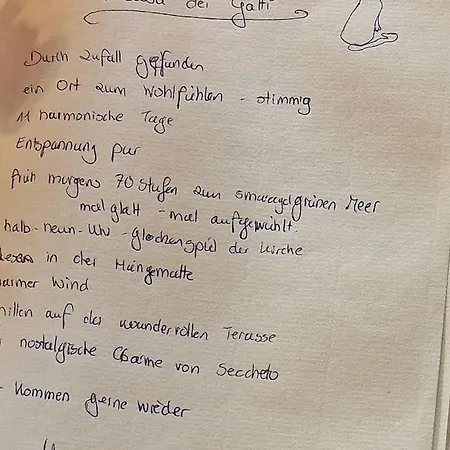 dei Gatti
Durch Zufall gefunden
ein Ort zum Wohlfühlen - stimmig
11 harmonische Tage
Entspannung pur
früh morgens 70 Stufen zum smaragdgrünen Meer
mal glatt - mal aufgewühlt.
halb-neun-Uhr - Glockenspiel der Kirche
lesen in der Hängematte
armer Wind
hillen auf der wundervollen Terasse
nostalgische Charme von Seccheto
kommen gerne wieder